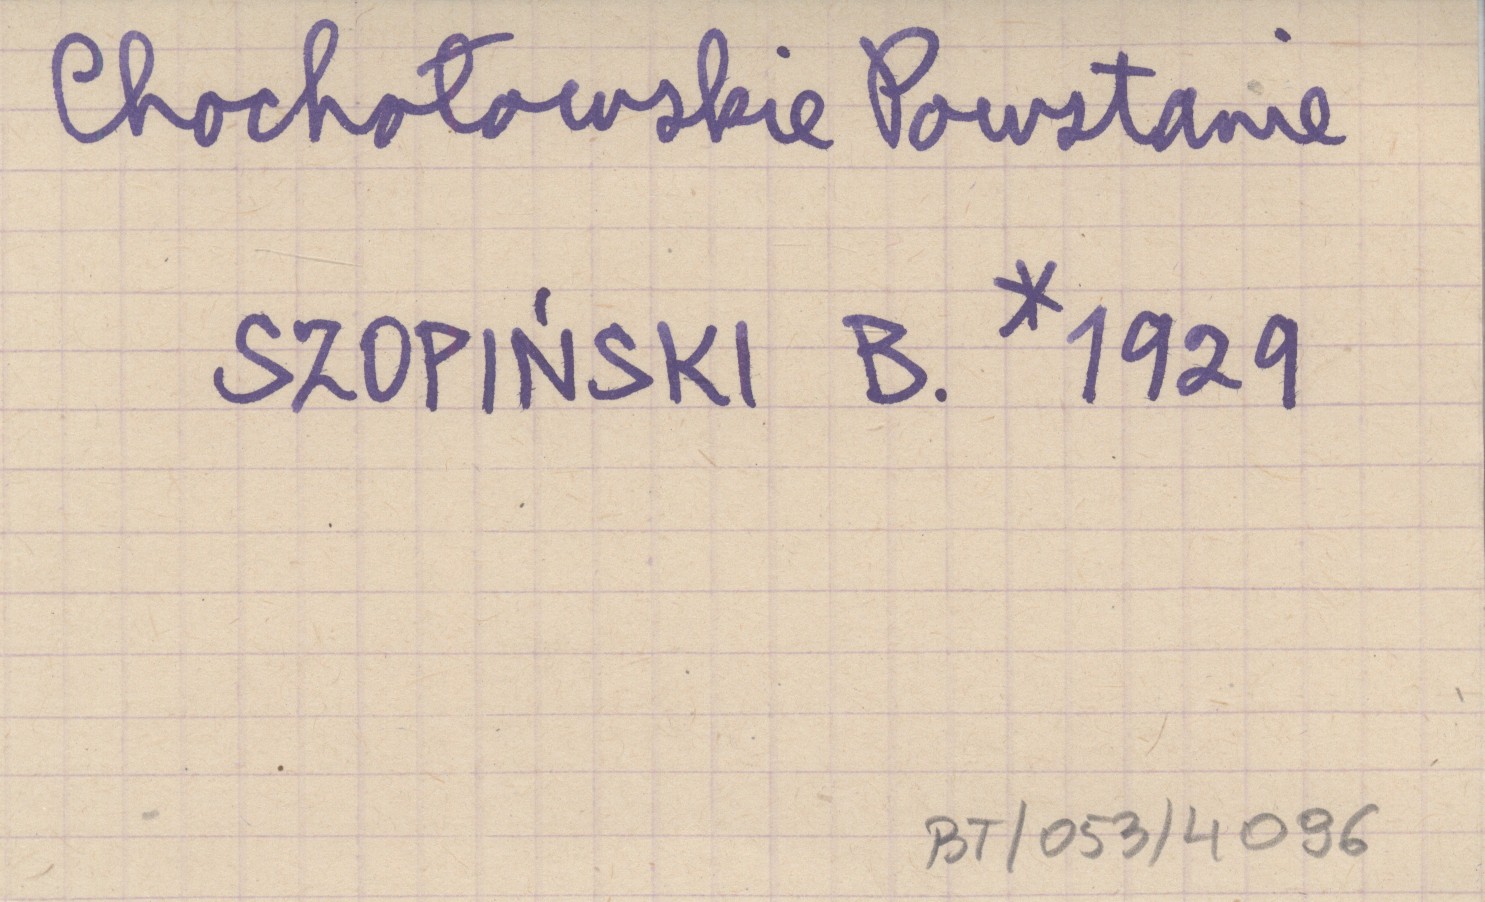 Chochołowskie Powstanie
SZOPIŃSKI B. *1929
BT/053/4096